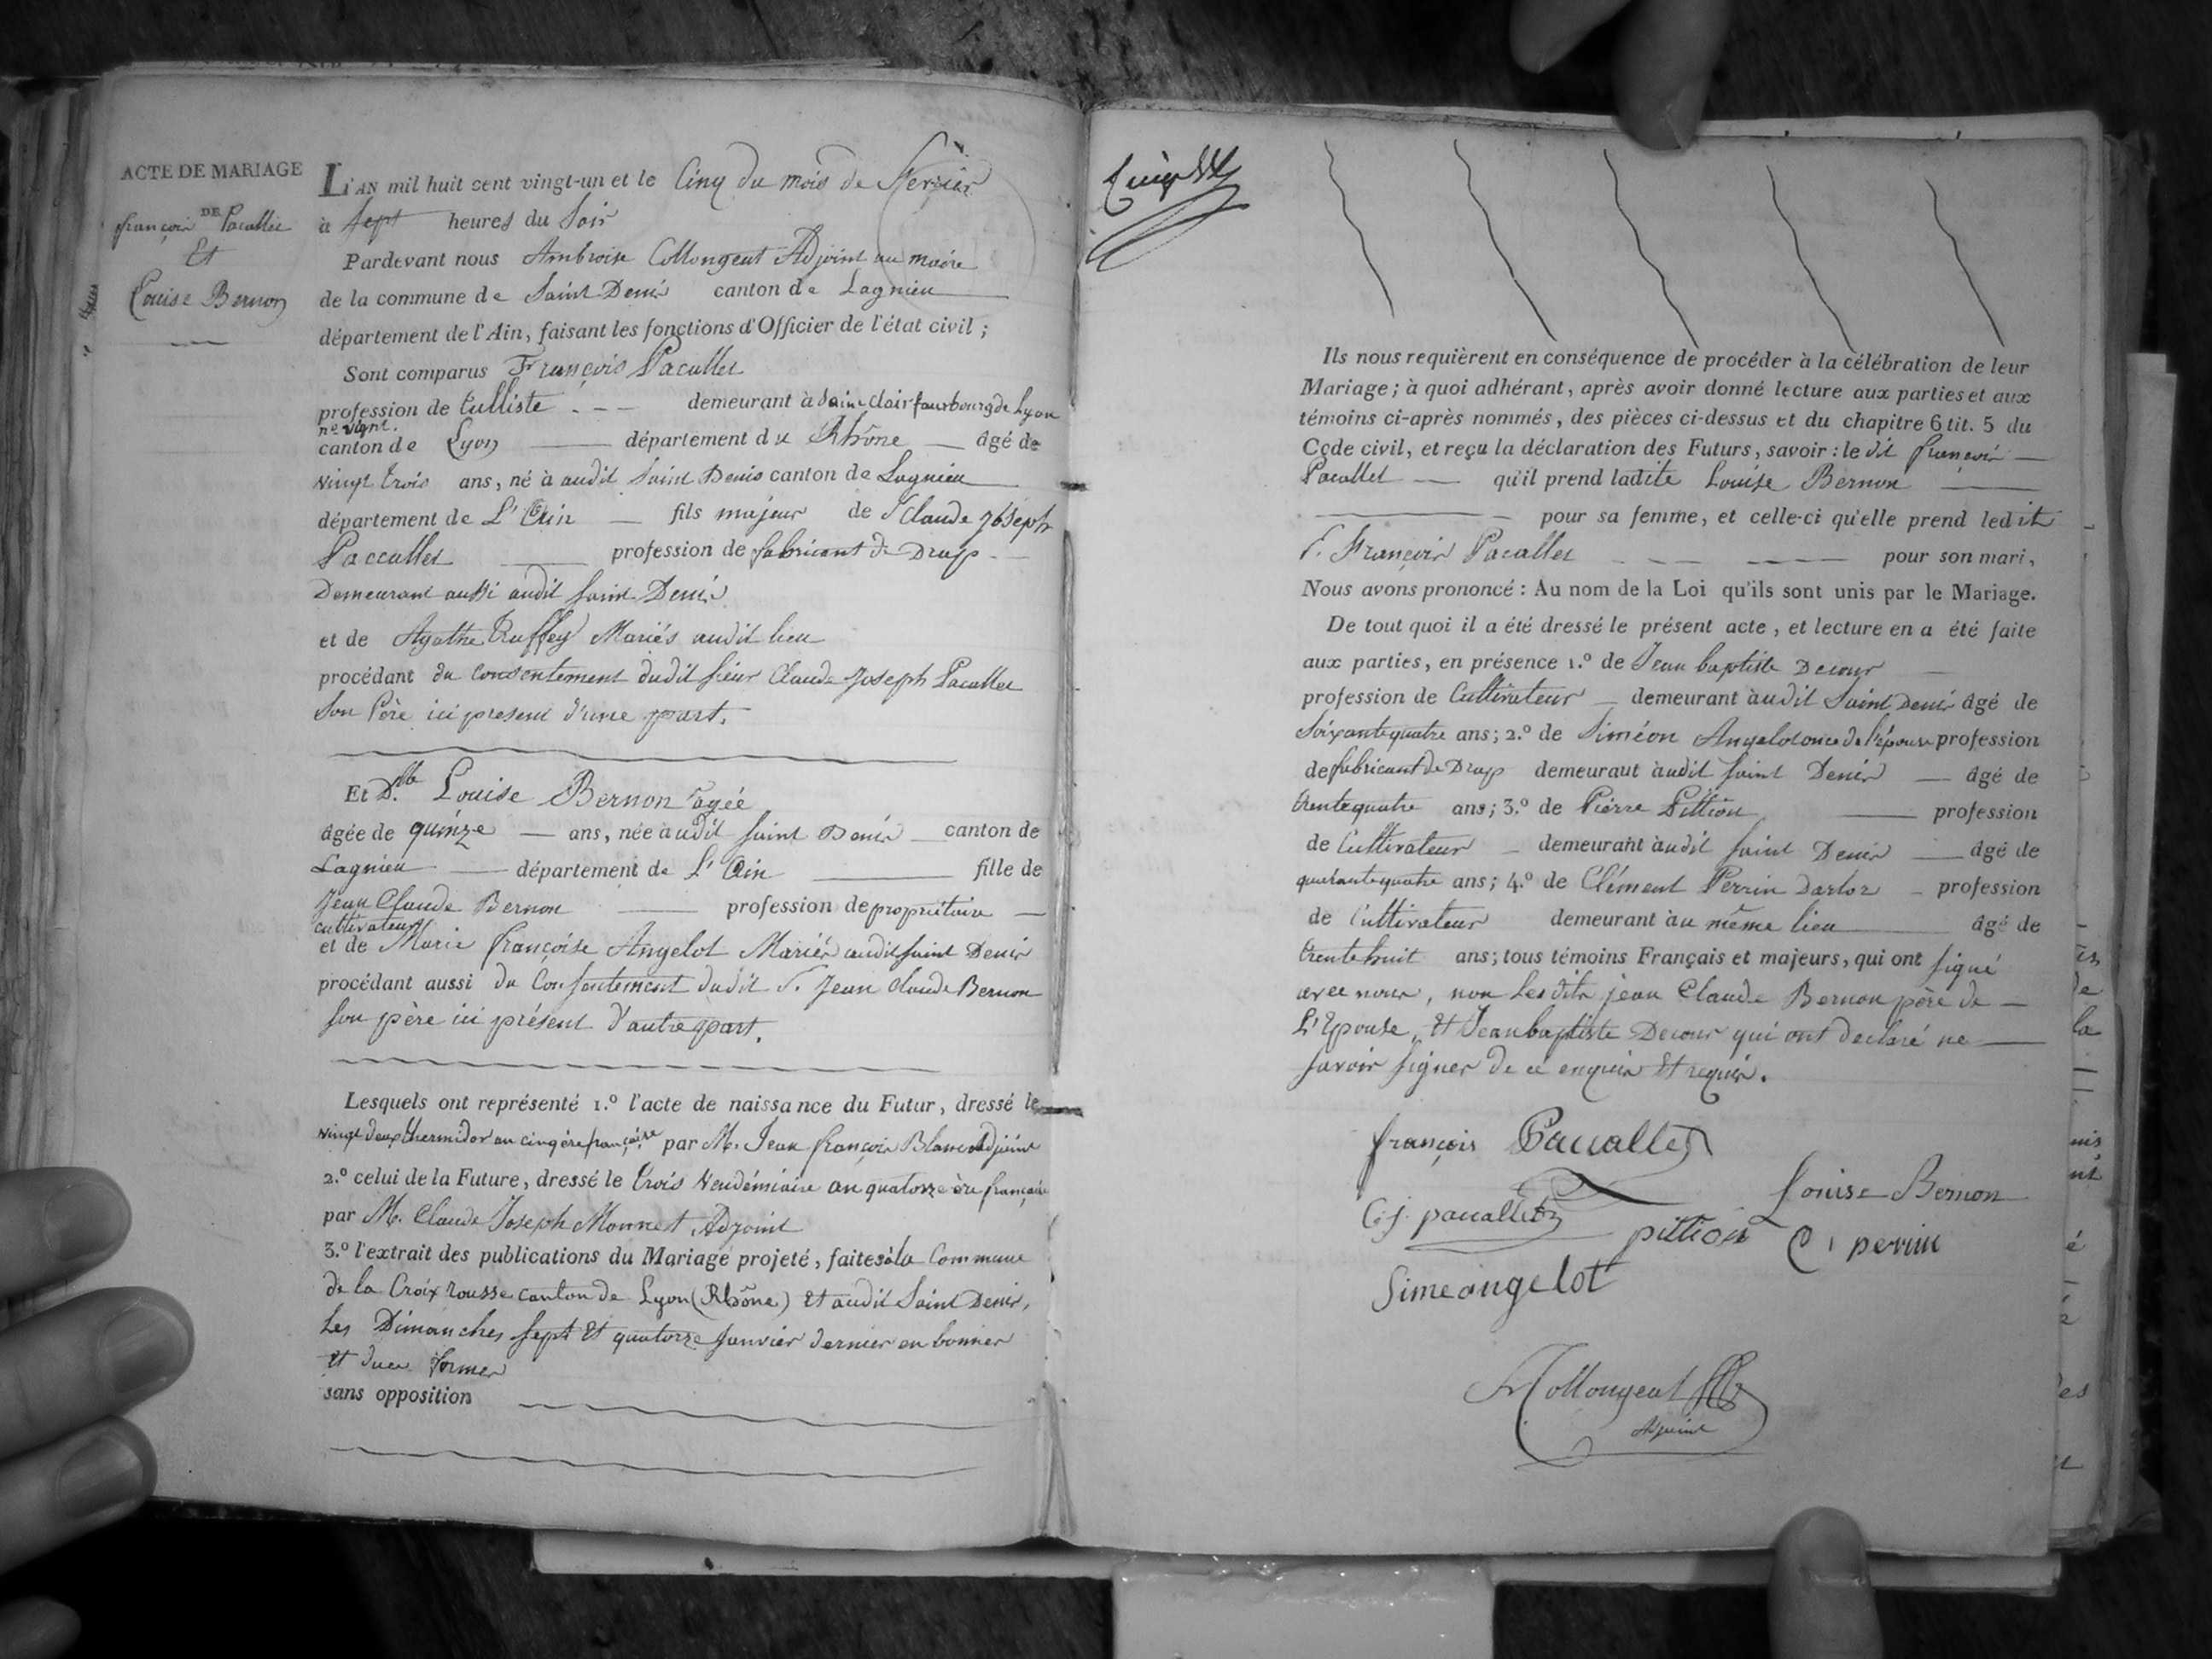 ACTE DE MARIAGE
DE
françois Pacallet
Et
Louise Bernon
L'AN mil huit cent vingt-un et le Cinq du mois de fevrier
à Sept heures du Soir
Pardevant nous Ambroise Collongeat Adjoint au maire
de la commune de Saint Denis canton de Lagnieu
département de l'Ain, faisant les fonctions d'Officier de l'état civil ;
Sont comparus François Pacallet
profession de tulliste demeurant à Saint Clair faurbourg de Lyon
n.º vignt.
canton de Lyon département du Rhône âgé de
vingt trois ans, né à audit Saint Denis canton de Lagnieu
département de L'Ain fils majeur de S Claude Joseph
Paccallet profession de fabricant de Drap
Demeurant aussi audit Saint Denis
et de Agathe Ruffey Mariés audit lieu
procédant du consentement dudit sieur Claude Joseph Pacallet
Son Père ici present d'une part.
Et D.lle Louise Bernon agée
âgée de quinze ans, née à audit Saint Denis canton de
Lagnieu département de L'Ain fille de
Jean Claude Bernon profession de propriétaire
cultivateur
et de Marie françoise Angelot Mariés audit Saint Denis
procédant aussi du Consentement dudit S. Jean Claude Bernon
son père ici présent d'autre part.
Lesquels ont représenté 1.º l'acte de naissance du Futur, dressé le
vingt deux thermidor an cinq ère française par M. Jean françois Blanc Adjoint
2.º celui de la Future, dressé le trois Vendémiaire an quatorze ère française
par M. Claude Joseph Monnet Adjoint
3.º l'extrait des publications du Mariage projeté, faites à la Commune
de la Croix rousse canton de Lyon (Rhône) Et audit Saint Denis,
Les Dimanches sept Et quatorze Janvier dernier en bonnes
Et dues formes
sans opposition
Ils nous requièrent en conséquence de procéder à la célébration de leur
Mariage ; à quoi adhérant, après avoir donné lecture aux parties et aux
témoins ci-après nommés, des pièces ci-dessus et du chapitre 6 tit. 5 du
Code civil, et reçu la déclaration des Futurs, savoir : le dit françois
Pacallet qu'il prend ladite Louise Bernon
pour sa femme, et celle-ci qu'elle prend ledit
S. François Pacallet pour son mari,
Nous avons prononcé : Au nom de la Loi qu'ils sont unis par le Mariage.
De tout quoi il a été dressé le présent acte, et lecture en a été faite
aux parties, en présence 1.º de Jean baptiste Decour
profession de Cultivateur demeurant à audit Saint Denis âgé de
Soixante quatre ans ; 2.º de Siméon Angelot oncle de l'épouse profession
de fabricant de Drap demeuraut à audit Saint Denis âgé de
trente quatre ans ; 3.º de Pierre Pittion profession
de Cultivateur demeurant à audit Saint Denis âgé de
quarante quatre ans ; 4.º de Clément Perrin Darloz profession
de Cultivateur demeurant à au même lieu âgé de
trente huit ans ; tous témoins Français et majeurs, qui ont signé
avec nous, non Lesdits jean Claude Bernon père de
L'Epouse, Et Jean baptiste Decour qui ont declaré ne
savoir signer de ce enquis Et requis.
françois Paccallet
Louise Bernon
C. j. pacallet
pittion
C perrin
Simeongelot
Collongeat
Adjoint